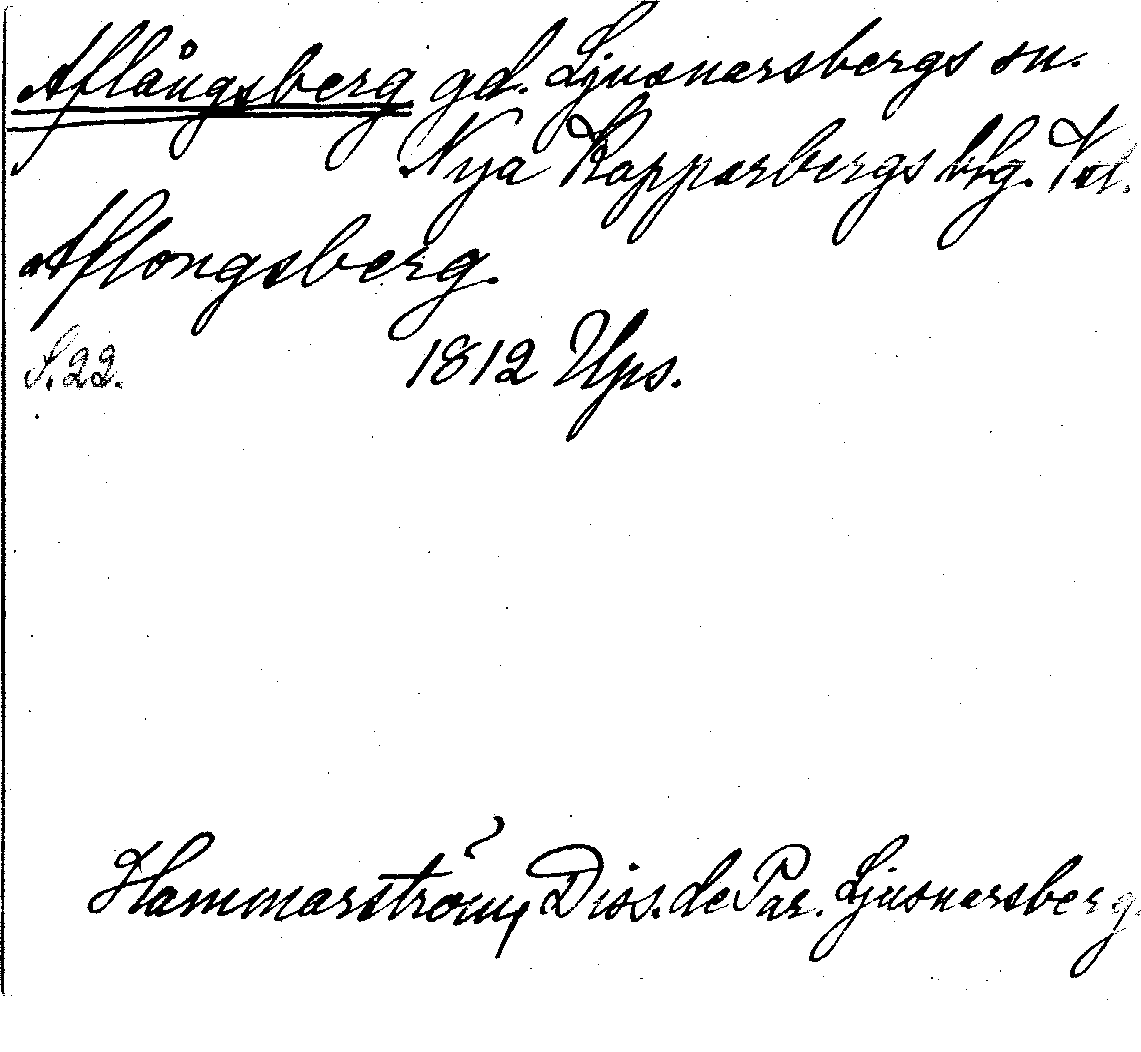 Aflångsberg gd. Ljusnarsbergs sn.
Nya Kopparbergs blg. Vstl.
Aflongsberg.
S. 22. 1812 Ups.
Hammarström, Diss. de Par. Ljusnarsberg.